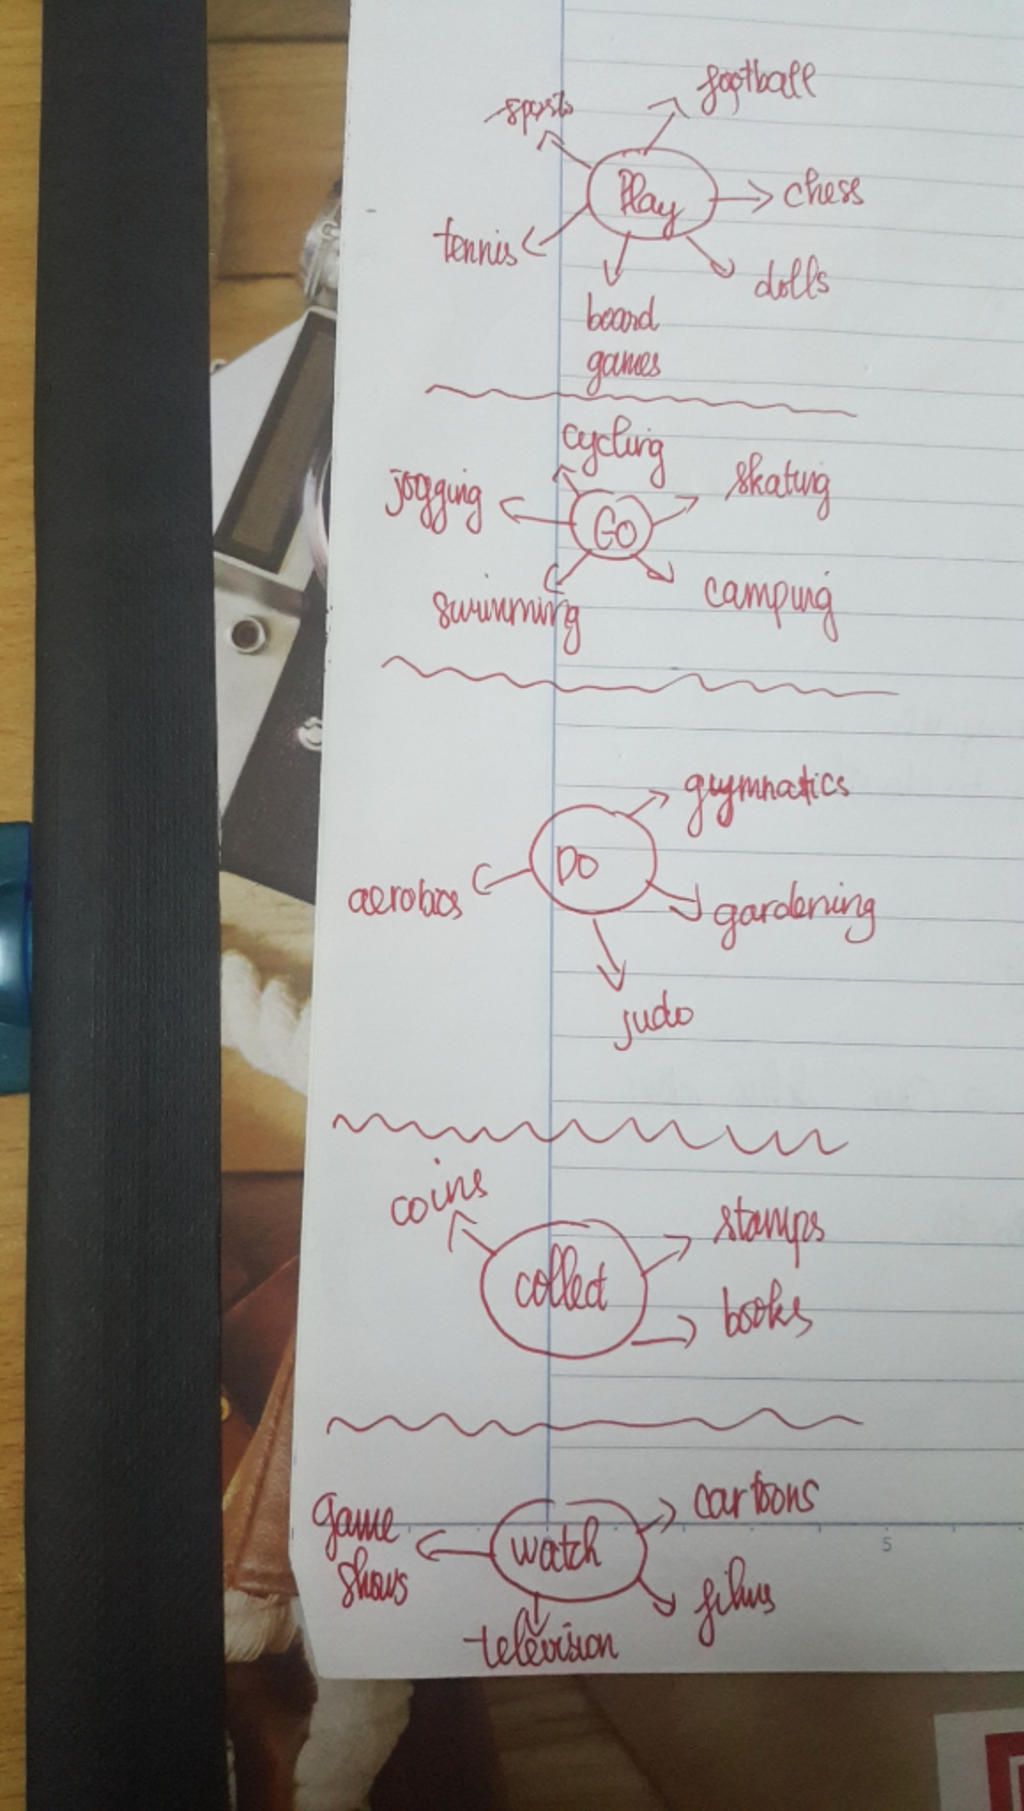 football
sports
Play
chess
tennis
dolls
board
games
cycling
skating
jogging
GO
camping
swimming
gymnatics
DO
aerobics
gardening
judo
coins
stamps
collect
books
cartoons
game
shows
watch
films
television
5